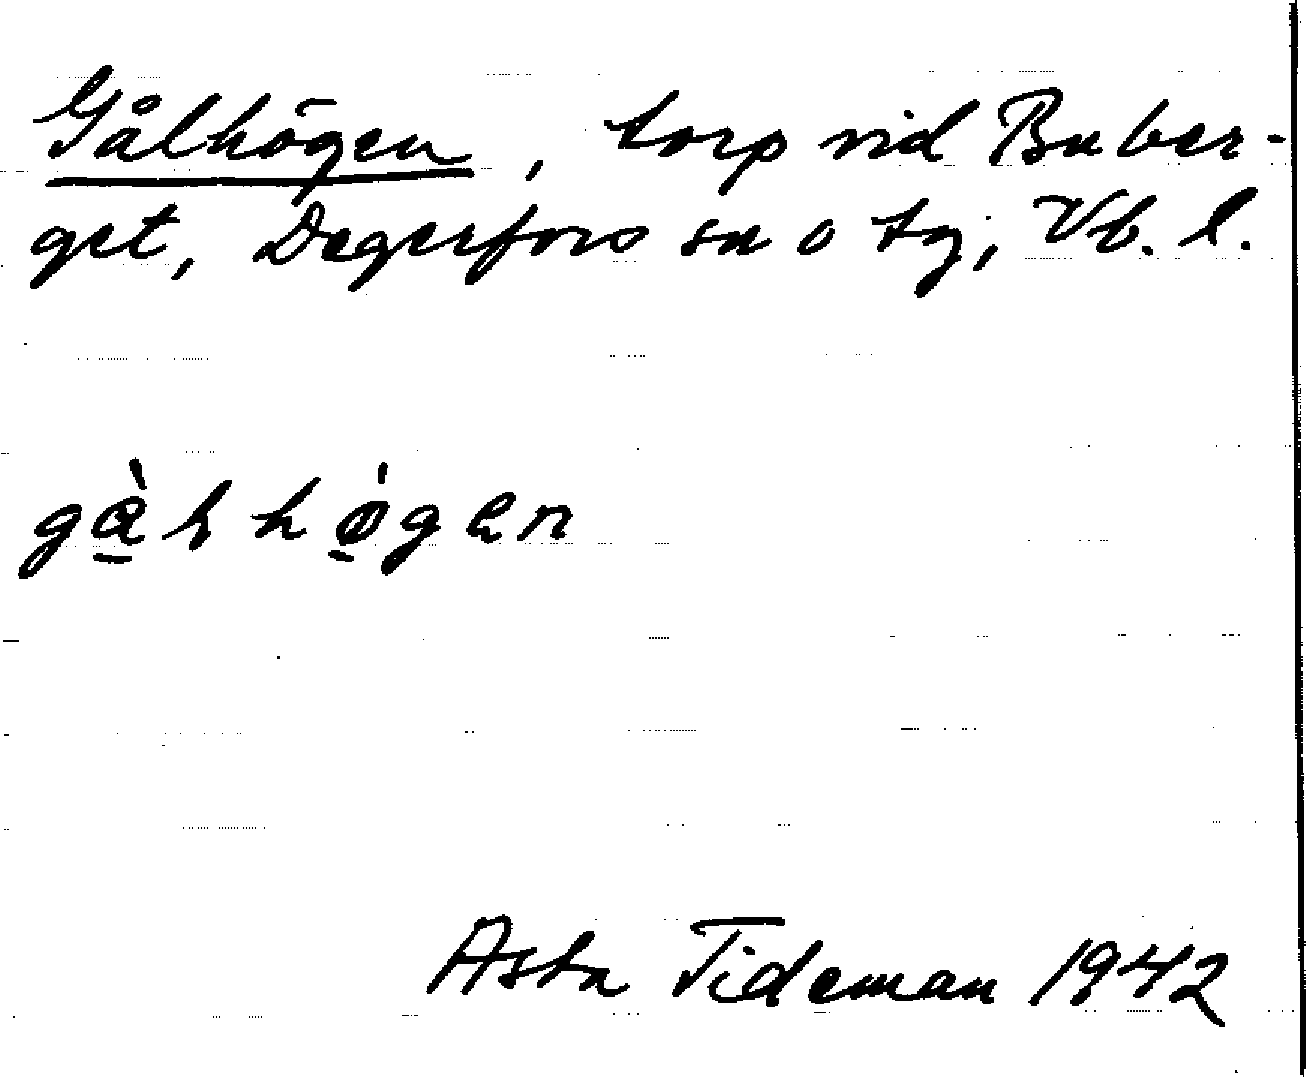 Gålhögen, torp vid Buber-
get, Degerfors sn o tg, Vb. l.
Asta Tideman 1942